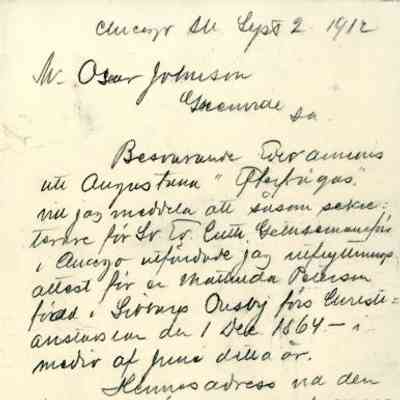 Chicago Ill Sept 2 1912
Mr. Oscar Johnson
Besvarande Eder annons
uti Augustana "Efterfrågas"
vill jag meddela att såsom sekre-
terare för Sv. Ev. Luth. Gethsemaneförs
i Chicago utfärdade jag utflyttnings
attest för en Mathilda Peterson
född i Ousby förs Christi-
anstads län den 1 Dec 1864 – i
medio af Juni detta år.
Hennes adress vid den